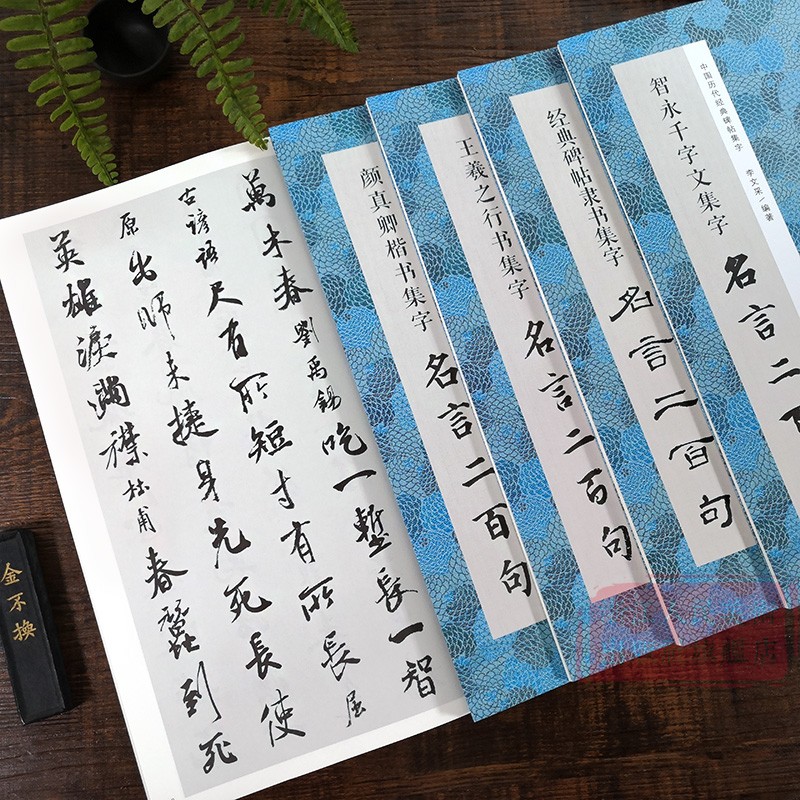 萬木春 劉禹錫 吃一塹長一智
古諺語 尺有所短寸有所長 屈
原 出師未捷身先死長使
英雄淚滿襟 杜甫 春蠶到死
颜真卿楷书集字
名言二百句
王羲之行书集字
名言二百句
经典碑帖隶书集字
名言二百句
中国历代经典碑帖集字 李文采/编著
智永千字文集字
名言二百
金不換